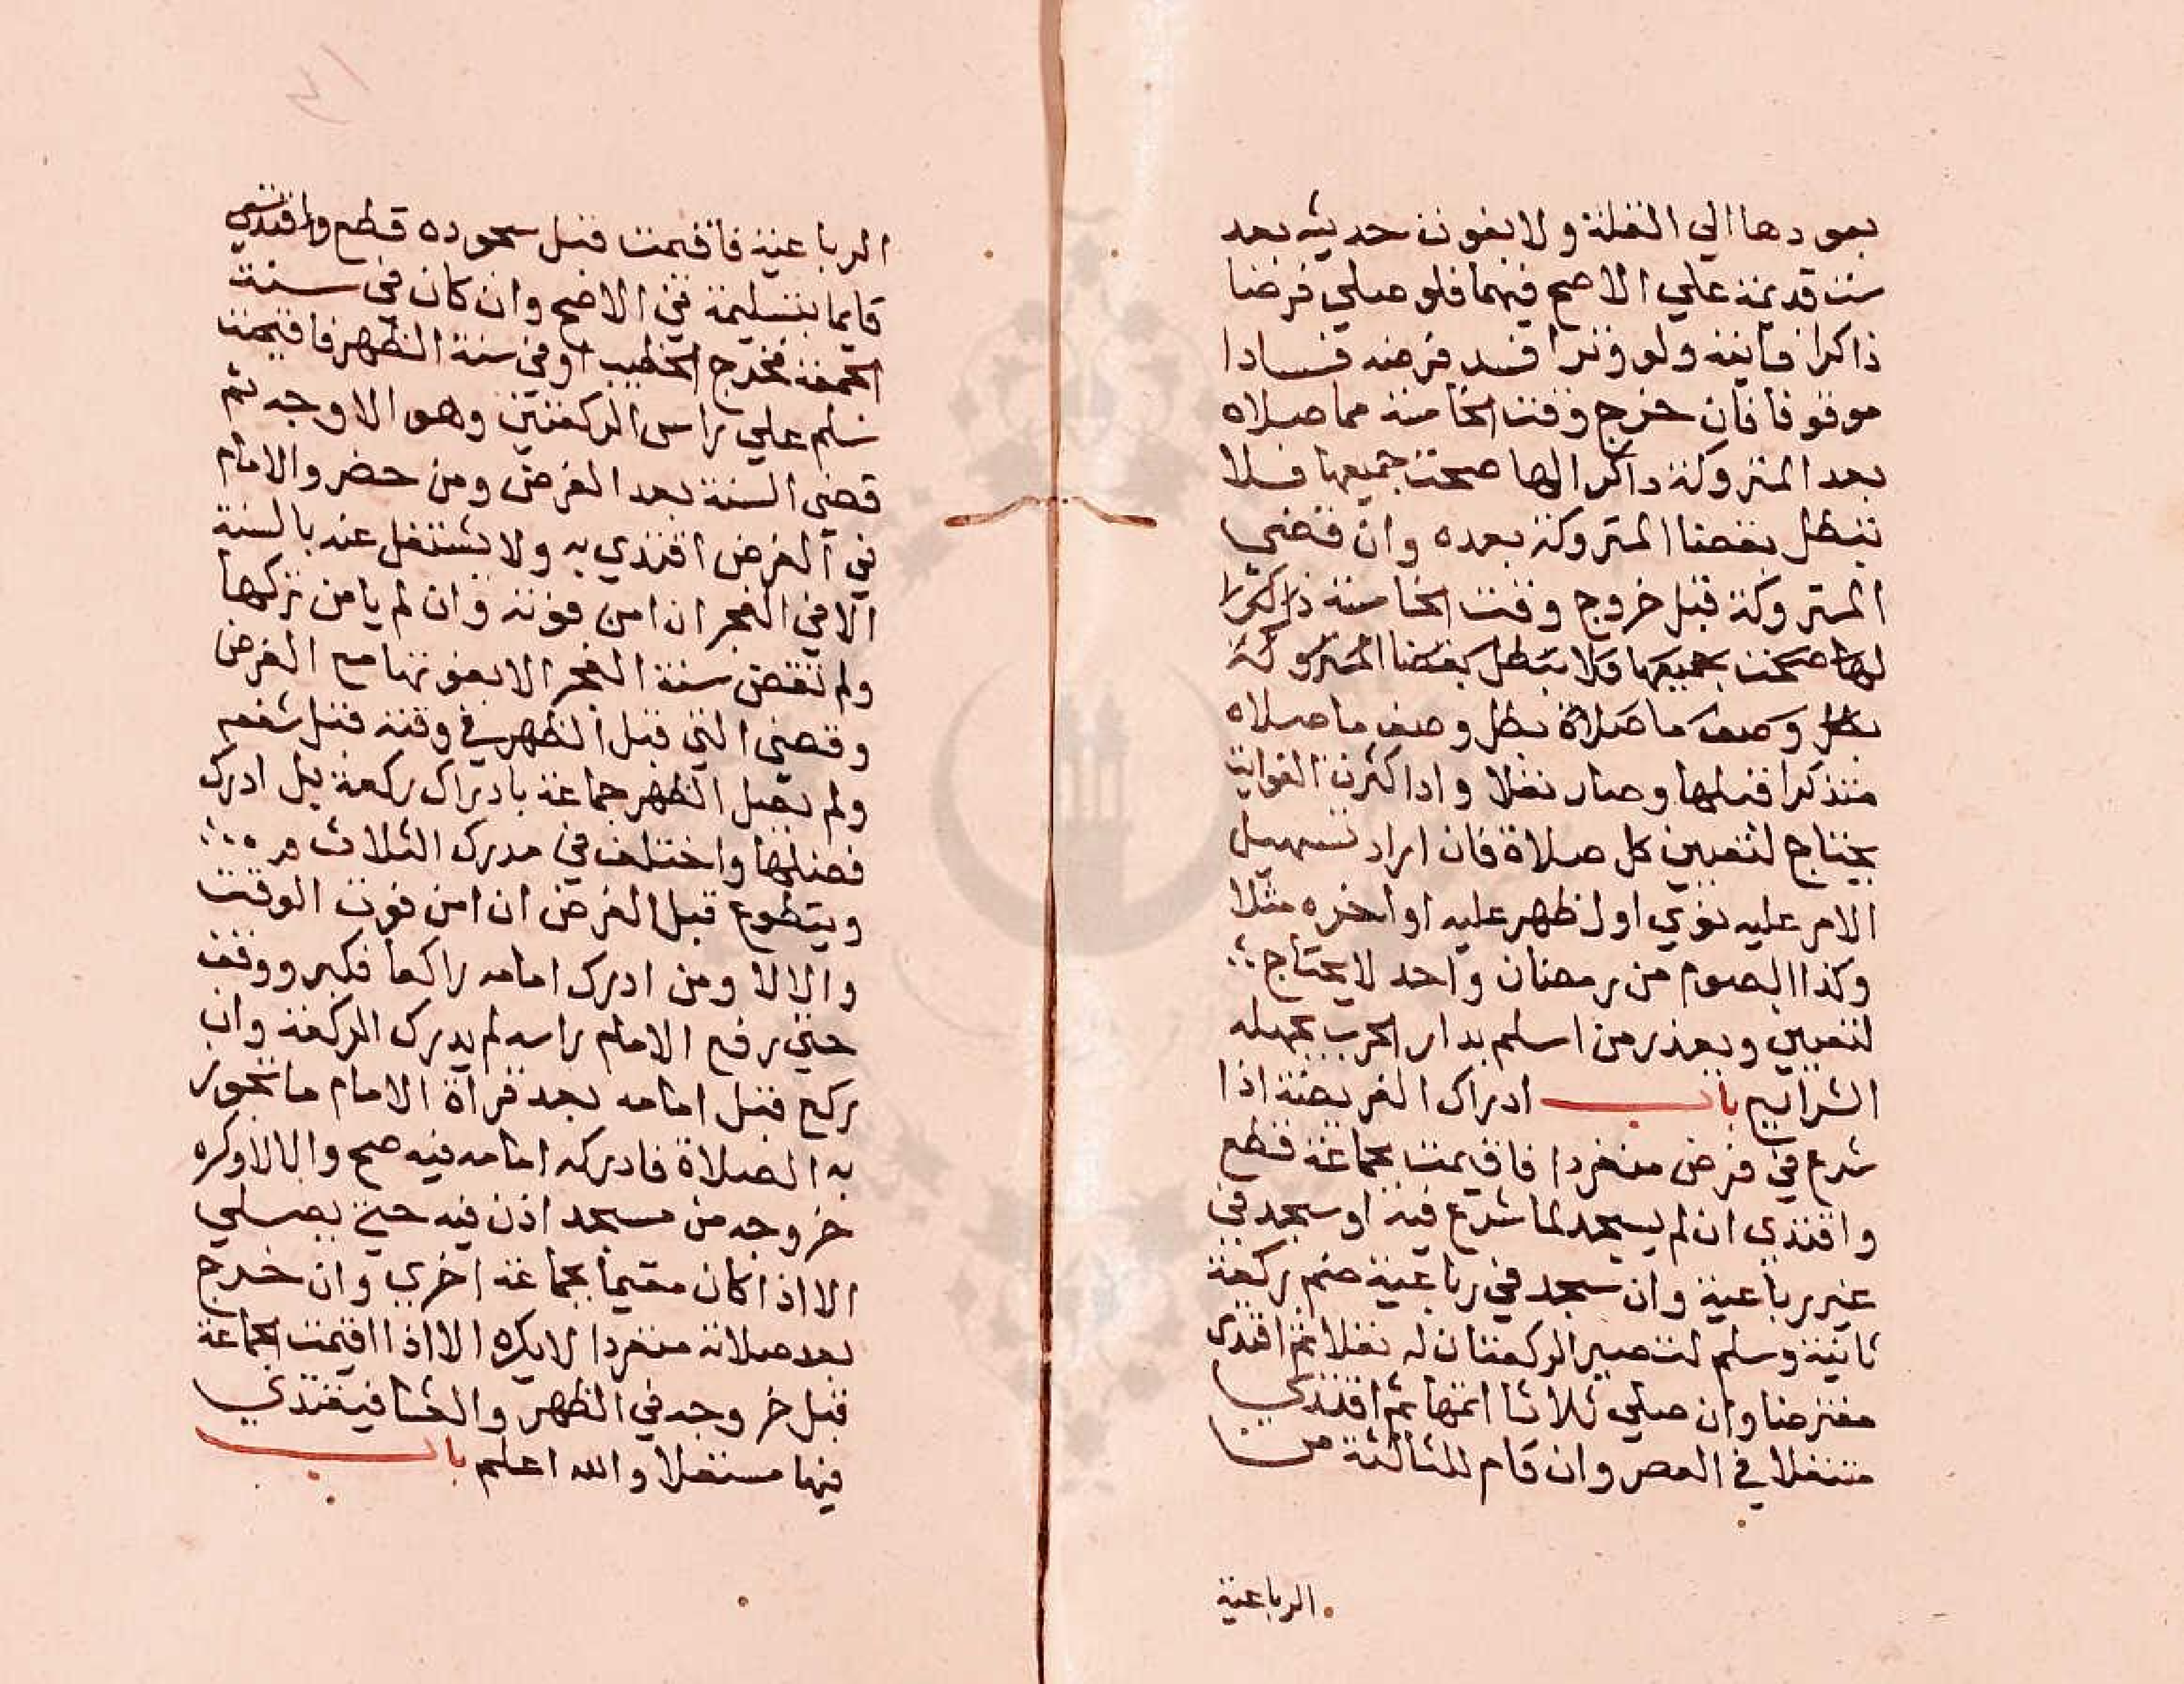 بعودها الي القلة ولا بفوت حديثه بعد
ست قديمة علي الاصح فيهما فلو صلي فرضا
ذاكرا فايتة ولو وترا فسد فرضه فسادا
موقوفا فان خرج وقت الخامسة مما صلاه
بعد المتروكة ذاكرا لها صحت جميعها فلا
تبطل بقضا المتروكة بعده وان قضي
المتروكة قبل خروج وقت الخامسة ذاكرا
لها صحت جميعها فلا تبطل بقضا المتروكة
بطل وصف ما صلاة بطل وصف ما صلاه
متذكرا قبلها وصار نفلا واذا كثرت الفوايت
يحتاج لتعيين كل صلاة فان اراد تسهيل
الامر عليه نوي اول ظهر عليه او اخره مثلا
وكذا الصوم من رمضان واحد لا يحتاج
لتعيين ويعذر من اسلم بدار الحرب بجهله
الشرائع باب ادراك الفريضة اذا
شرع في فرض منفردا فاقيمت الجماعة قطع
واقتدي ان لم يسجد لما شرع فيه او سجد في
غير رباعية وان سجد في رباعية ضم ركعة
ثانية وسلم لتصير الركعتان له نفلا ثم اقتدي
مفترضا وان صلي ثلاثا اتمها ثم اقتدي
متنفلا في العصر وان قام للثالثة من
الرباعية
الرباعية فاقيمت قبل سجوده قطع واقتدي
قايما بتسليمة في الاصح وان كان في سنة
الجمعة فخرج الخطيب او في سنة الظهر فاقيمت
سلم علي راس الركعتين وهو الاوجه ثم
قضي السنة بعد الفرض ومن حضر والامام
في الفرض اقتدي به ولا يشتغل عنه بالسنة
الا في الفجر ان امن فوته وان لم يامن تركها
ولم تقض سنة الفجر الا بفوتها مع الفرض
وقضي التي قبل الظهر في وقته قبل شفعه
ولم يصل الظهر جماعة بادراك ركعة بل ادرك
فضلها واختلف في مدرك الثلاث
ويتطوع قبل الفرض ان امن فوت الوقت
والا لا ومن ادرك امامه راكعا فكبر ووقف
حتي رفع الامام راسه لم يدرك الركعة وان
ركع قبل امامه بعد قراة الامام ما تجوز
به الصلاة فادركه امامه فيه صح والا لا وكره
خروجه من مسجد اذن فيه حتي يصلي
الا اذا كان مقيما بجماعة اخري وان خرج
بعد صلاته منفردا لا يكره الا اذا اقيمت الجماعة
قبل خروجه في الظهر والعشا فيقتدي
فيها متنفلا والله اعلم باب